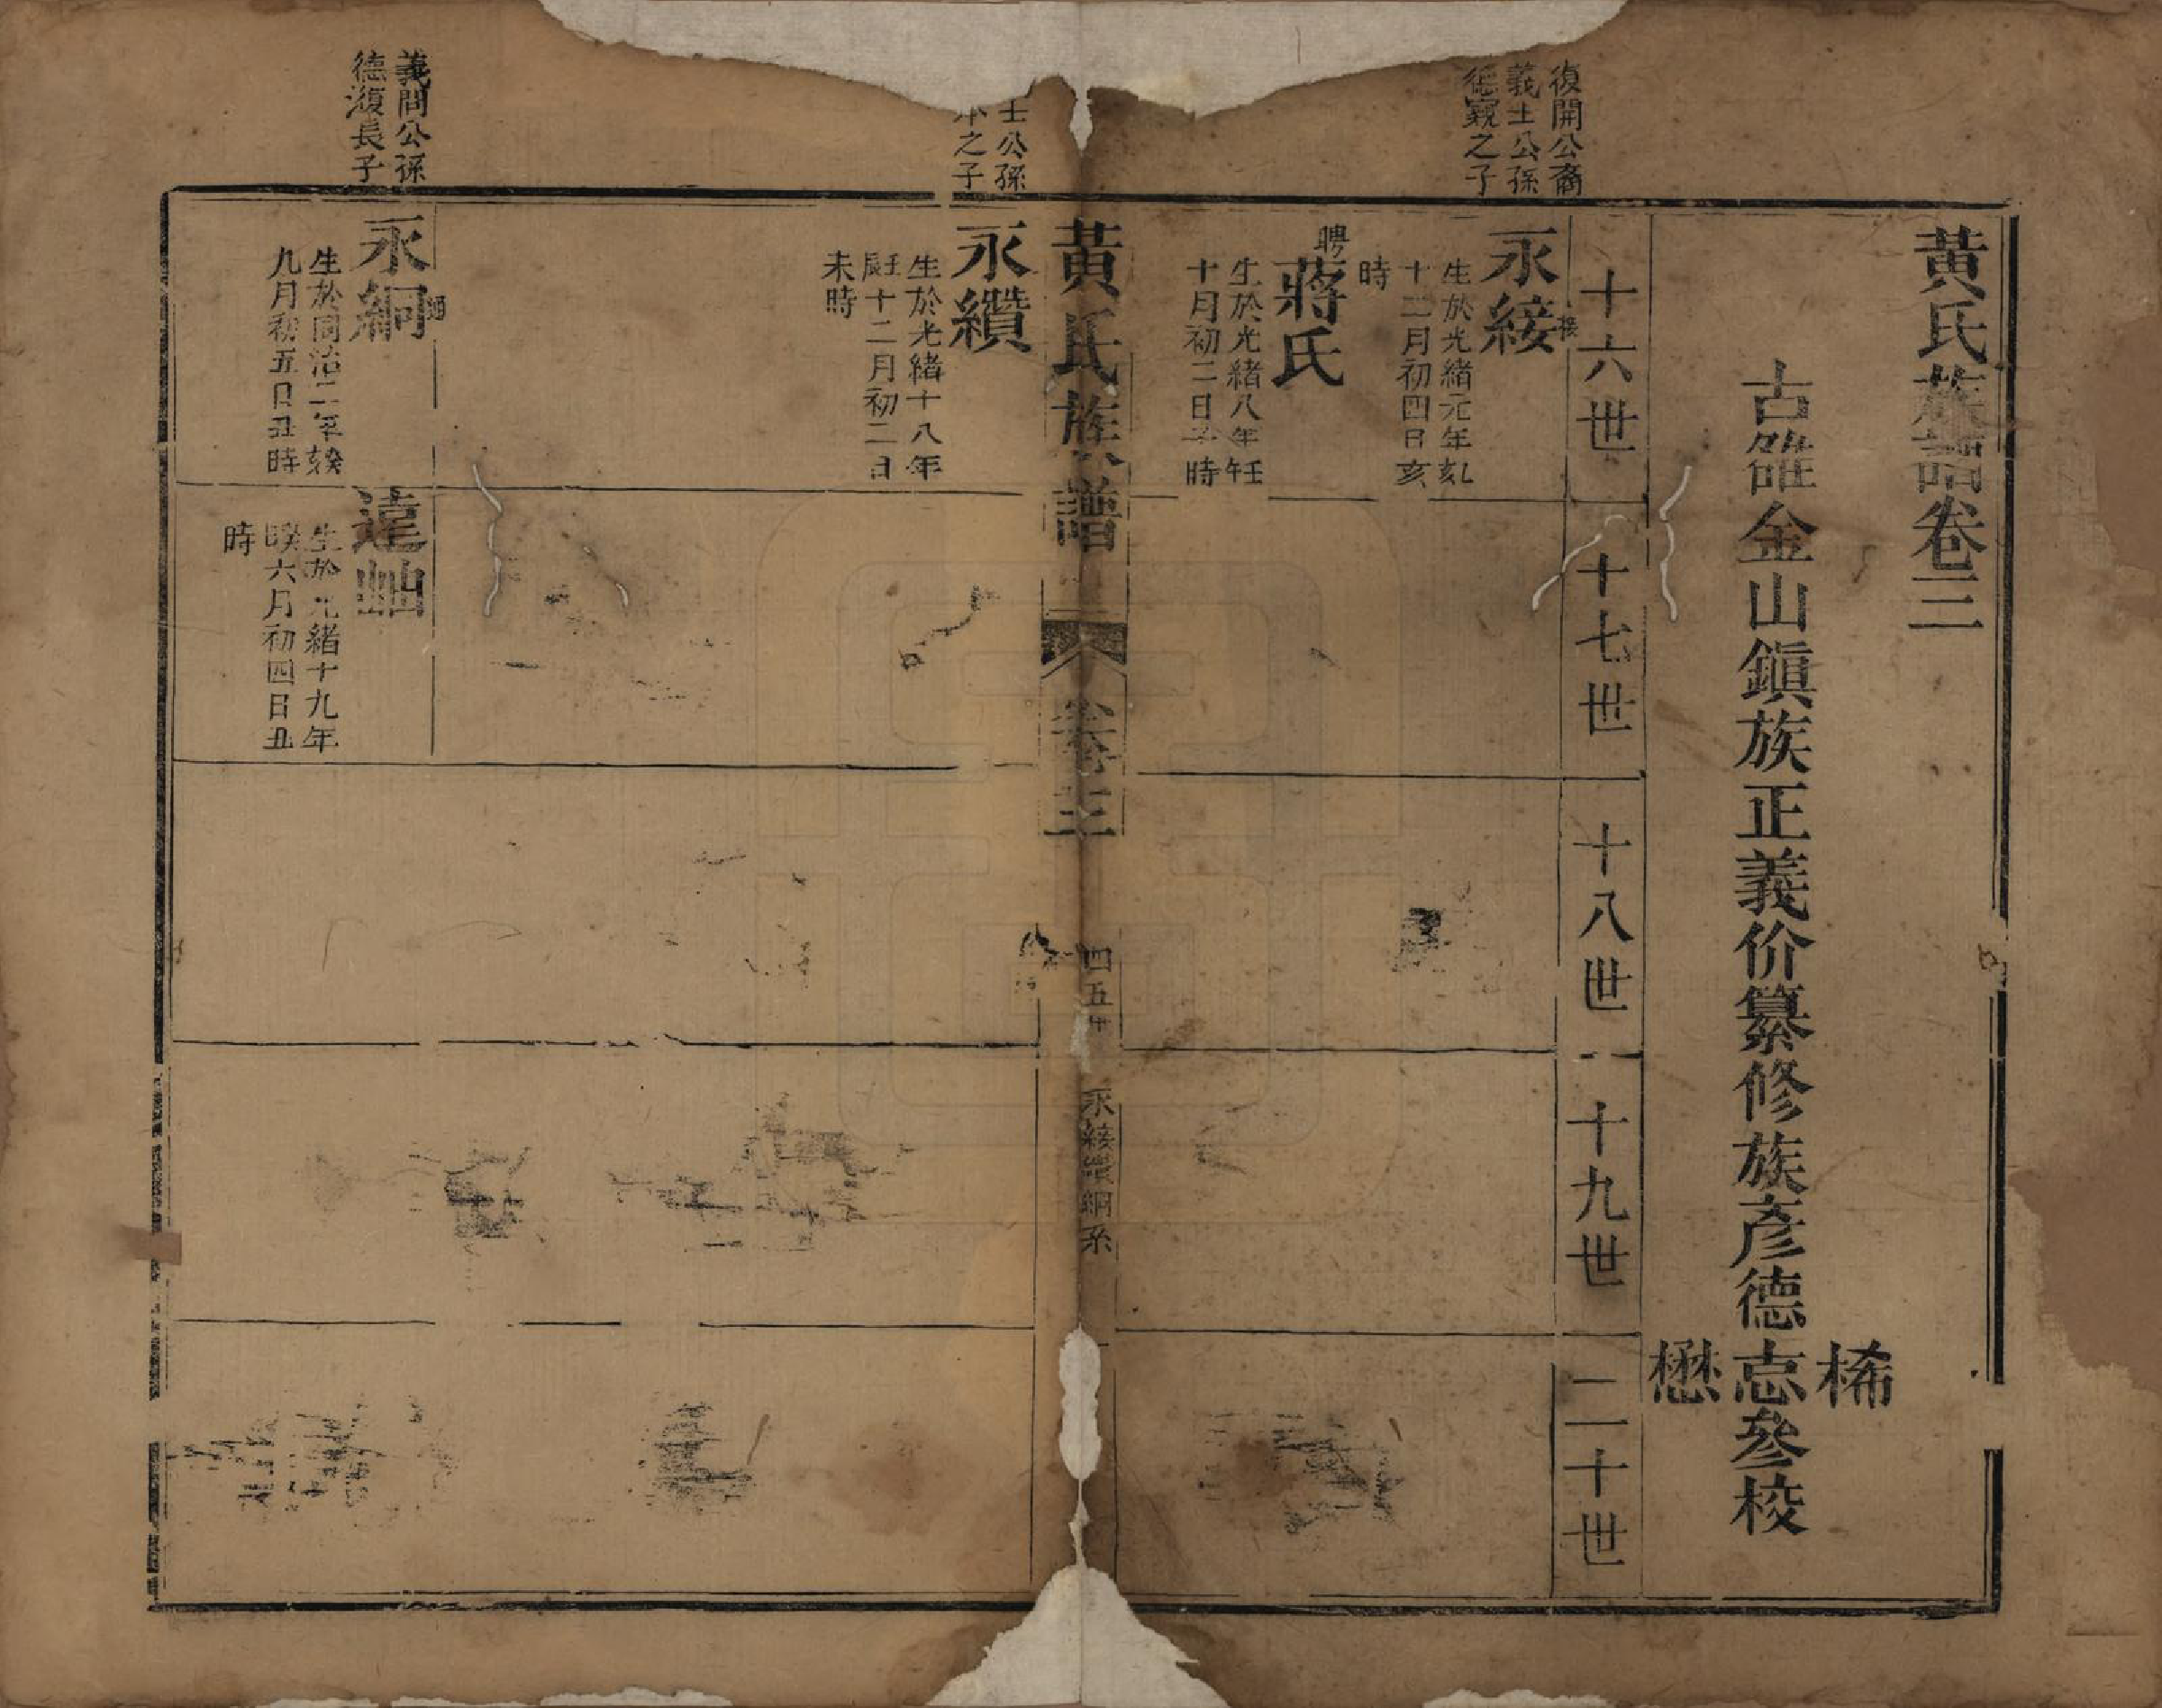 黃氏族譜卷三
古雒金山鎮族正義价纂修族彥德
桸
志
懋
參校
十六世
十七世
十八世
十九世
二十世
復開公裔
義士公孫
德寬之子
永綏
生於光緒元年亥
十二月初四日亥
時
聘蔣氏
生於光緒八年壬午
十月初二日子時
黃氏族譜
卷三
四五世
士公孫
之子
永纘
生於光緒十八年
壬辰十二月初二日
未時
義問公孫
德澓長子
永絅
生於同治二年癸亥
九月初五日丑時
達岫
生於光緒十九年
癸巳六月初四日丑
時